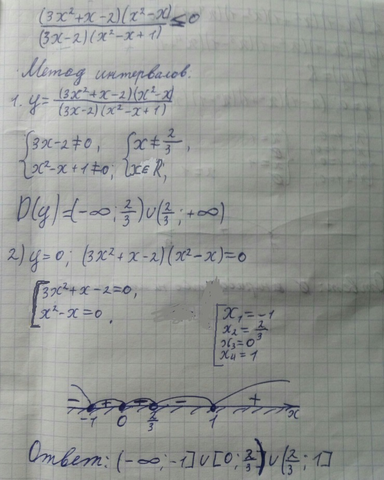 (3x²+x-2)(x²-x)/(3x-2)(x²-x+1) ≤ 0
Метод интервалов.
1. y = (3x²+x-2)(x²-x)/(3x-2)(x²-x+1)
{3x-2≠0, {x≠2/3,
{x²-x+1≠0; {x∈R;
D(y)=(-∞; 2/3)∪(2/3; +∞)
2) y=0; (3x²+x-2)(x²-x)=0
[3x²+x-2=0,
[x²-x=0.
[x₁=-1
x₂=2/3
x₃=0
x₄=1
- + - - +
-1 0 2/3 1 x
Ответ: (-∞; -1]∪[0; 2/3)∪(2/3; 1]